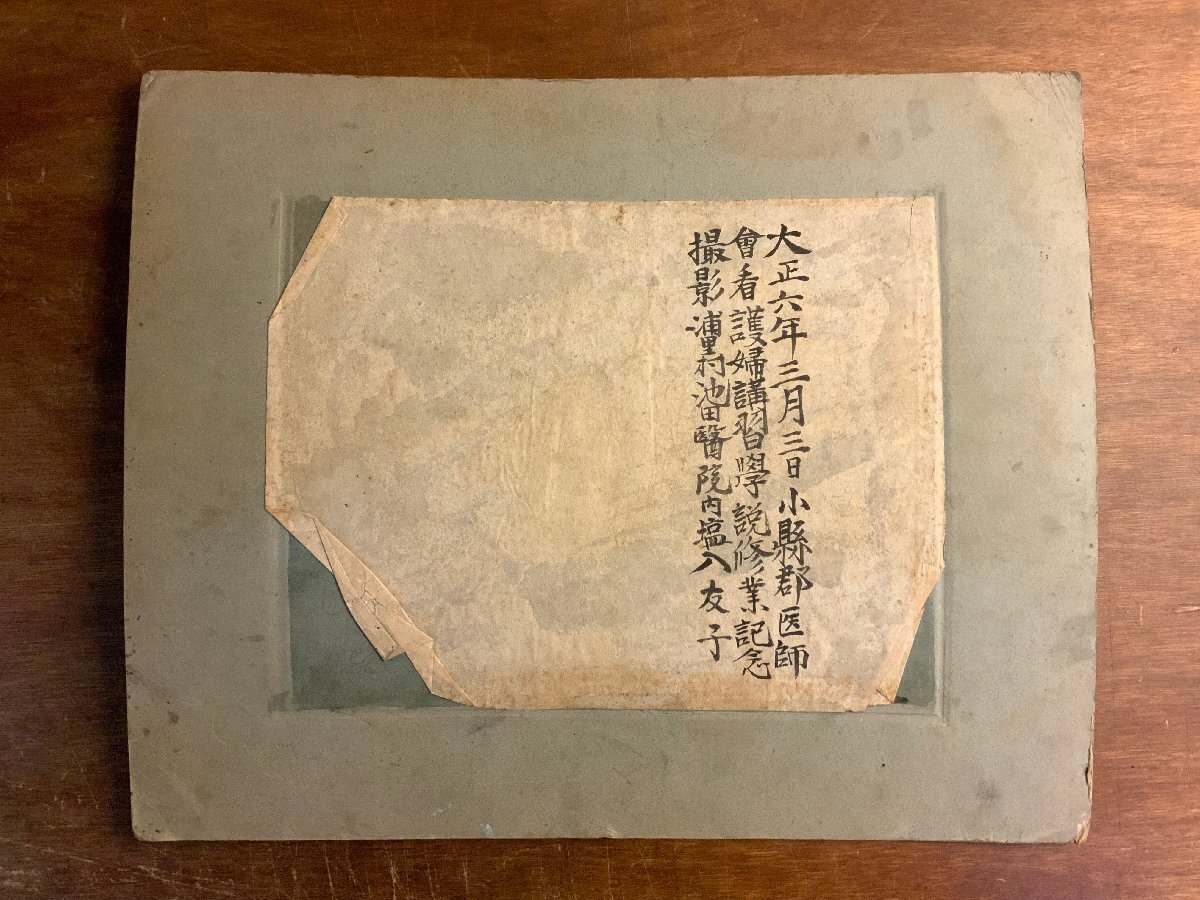 大正六年三月三日小縣郡医師
會看護婦講習學説修業記念
撮影浦里村池田醫院内塩入友子